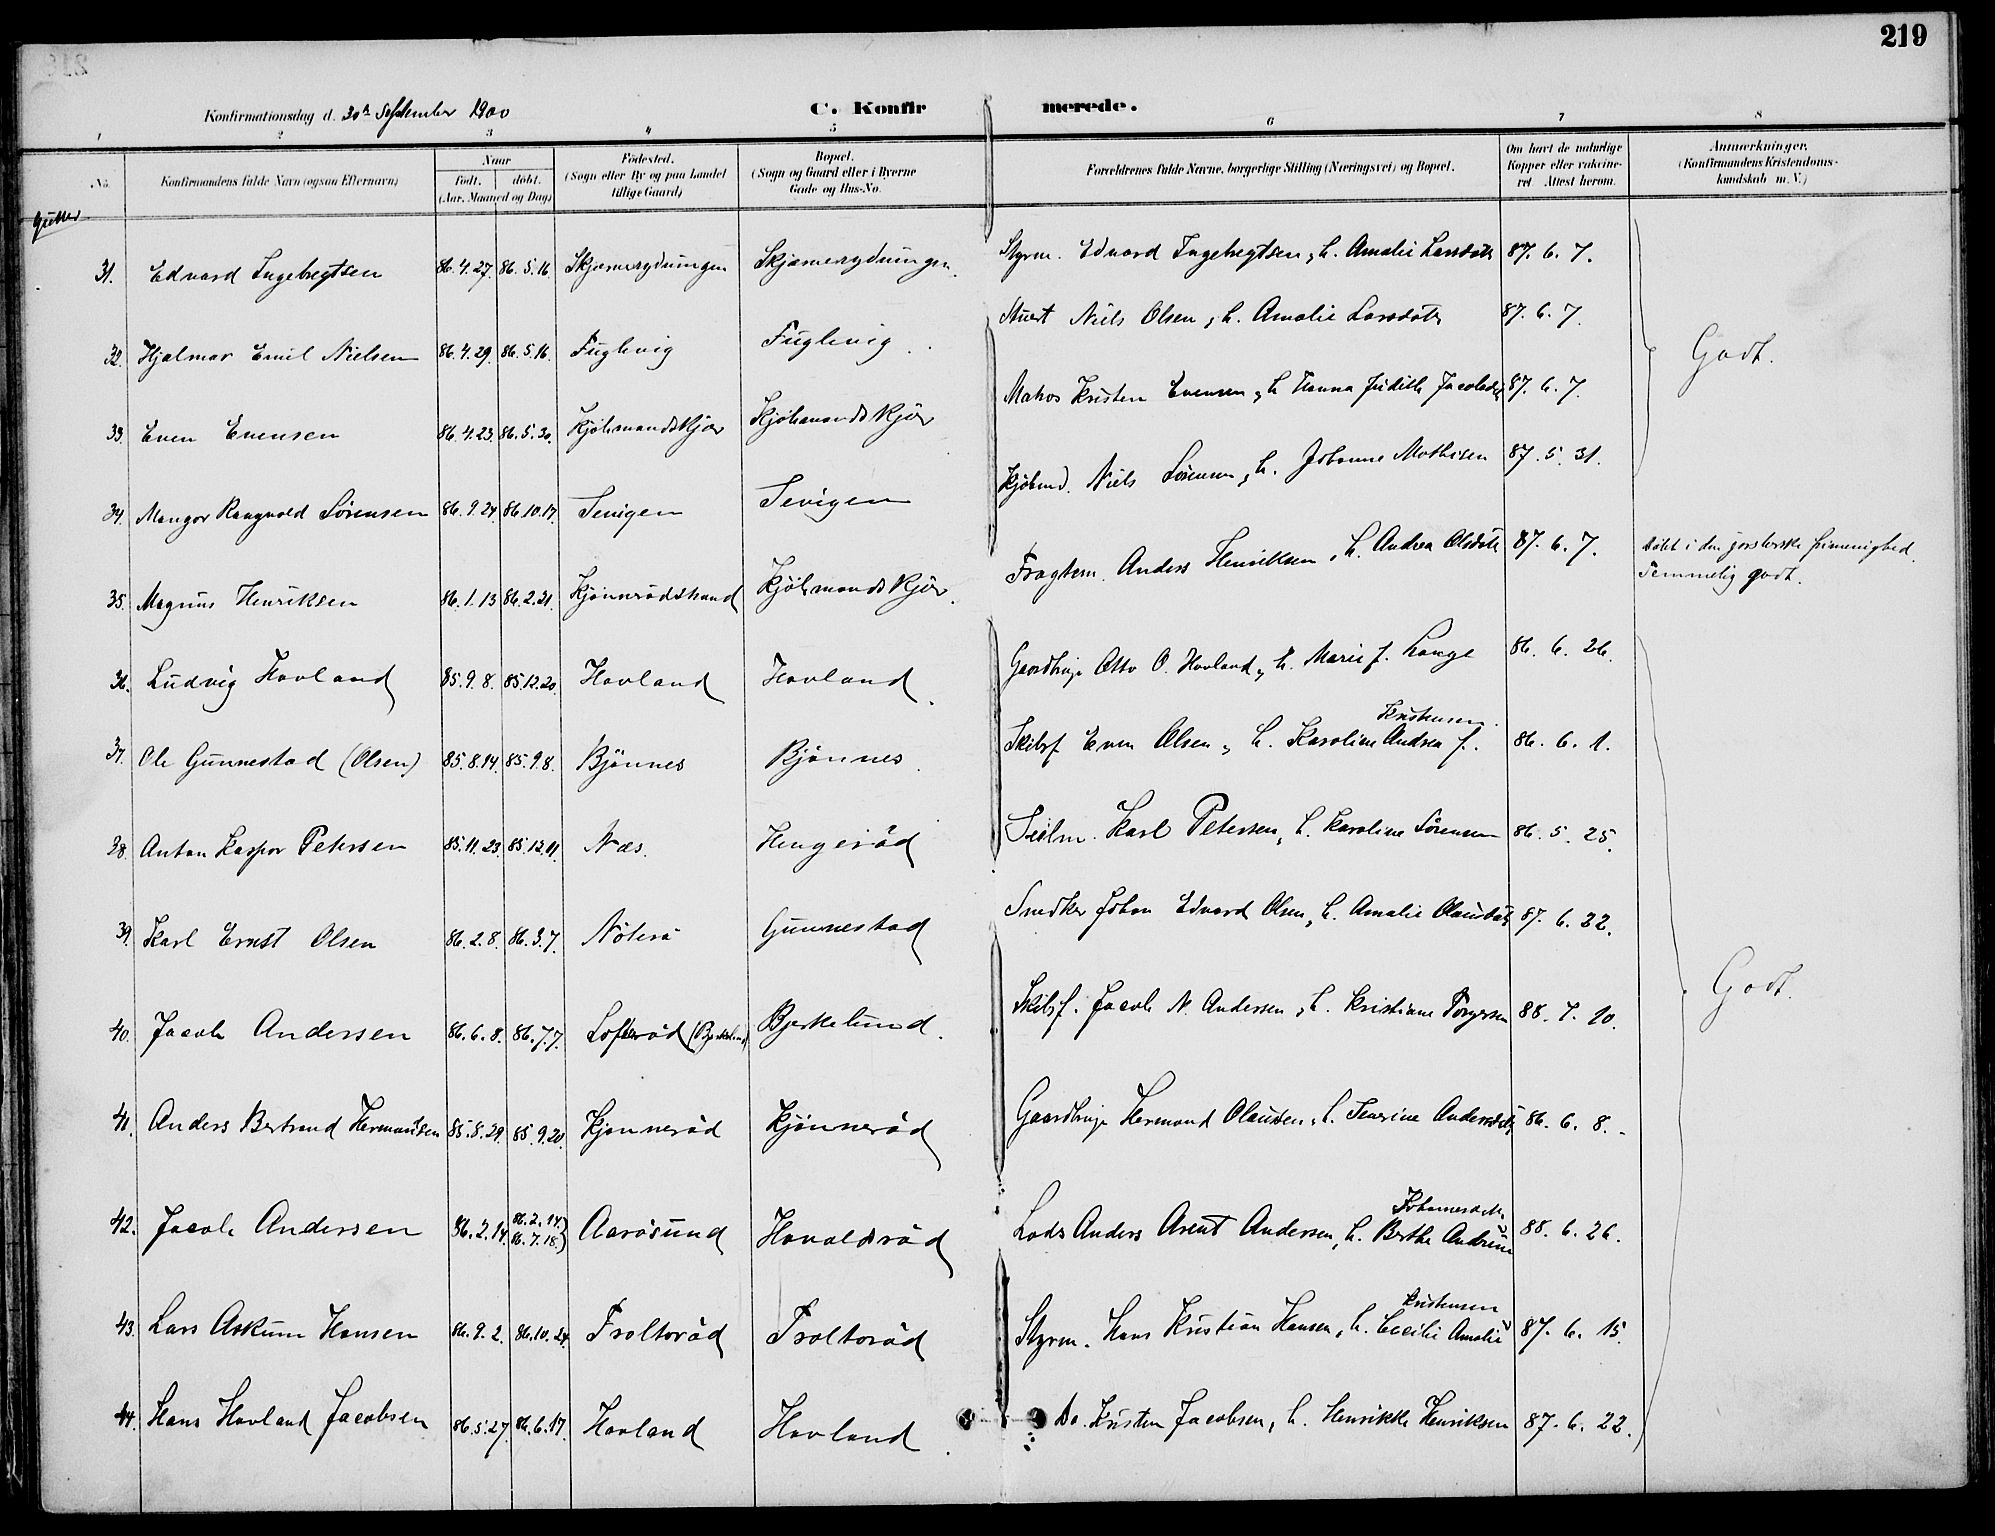 219
Konfirmationsdag d. 30te September 1900
C. Konfirmerede.
1 2 3 4 5 6 7 8
No. Konfirmandens fulde Navn (ogsaa Efternavn) Naar født. døbt. (Aar, Maaned og Dag) Fødested. (Sogn eller By og paa Landet tillige Gaard) Bopæl. (Sogn og Gaard eller i Byerne Gade og Hus-No. Forældrenes fulde Navne, borgerlige Stilling (Næringsvei) og Bopæl. Om havt de naturlige Kopper eller vakcineret. Attest herom. Anmærkninger. (Konfirmandens Kristendomskundskab m. V.)
Gutter
31. Edvard Ingebregtsen 86.4.27. 86.5.16. Skjærrerydningen Skjærrerydningen. Styrm. Edvard Ingebregtsen, h. Amalie Larsdatr 87.6.7.
32. Hjalmar Emil Nielsen 86.4.29. 86.5.16. Fuglevig Fuglevig. Stuert Niels Olsen, h. Amalie Larsdatr 87.6.7. Godt.
33. Even Evensen 86.4.23. 86.5.30. Kjøbmandskjær Kjøbmandskjær Matros Kristen Evensen, h. Hanna Judith Jacobsdtr 87.6.7.
34. Mangor Rangvald Sørensen 86.9.24. 86.10.17. Tevigen Tevigen Kjøbmd. Niels Sørensen, h. Johanne Mathisen 87.5.31.
35. Magnus Henriksen 86.1.13 86.2.21. Kjønnerødstrand Kjøbmandskjær. Fragtem. Anders Henriksen, h. Andrea Olsdatr 87.6.7. Døbt i den jarlsbergske frimenighed. Temmelig godt.
36. Ludvig Havland 85.9.8. 85.12.20. Havland Havland. Gaardbrug. Otto O. Havland, h. Marie f. Lange 86.6.26.
37. Ole Gunnestad (Olsen) 85.8.14. 85.9.8. Bjønnes Bjønnes. Skibsf. Even Olsen, h. Karoline Andrea f. Kristensen. 86.6.1.
38. Anton Kaspar Petersen 85.11.23. 85.12.11. Næs. Hengerød Seilm. Karl Petersen, h. Karoline Sørensen 86.5.25.
39. Karl Ernst Olsen 86.2.8. 86.3.7. Nøterø Gunnestad Snedker Johan Edvard Olsen, h. Amalie Olausdatr 87.6.22.
40. Jacob Andersen 86.6.8. 86.7.7. Lofterød (Bjerkelund) Bjerkelund. Skibsf. Jacob N. Andersen, h. Kristiane Torgersen 88.7.10. Godt.
41. Anders Bertrand Hermansen 85.8.29. 85.9.20. Kjønnerød Kjønnerød Gaardbrug. Hermand Olausen, h. Severine Andersdatr 86.6.8.
42. Jacob Andersen 86.2.14. 86.2.14. 86.7.18.) Aarøsund Havaldsrød Lods Anders Arent Andersen, h. Berthe Andrine Johannesdatr 88.6.26.
43. Lars Askum Hansen 86.9.2. 86.10.24. Froltorød Froltorød Styrm. Hans Kristian Hansen, h. Cecilie Amalie Kristensen 87.6.15.
44. Hans Havland Jacobsen 86.5.27. 86.6.17. Havland Havland. Do. Kristen Jacobsen, h. Henrikke Henriksen 87.6.22.